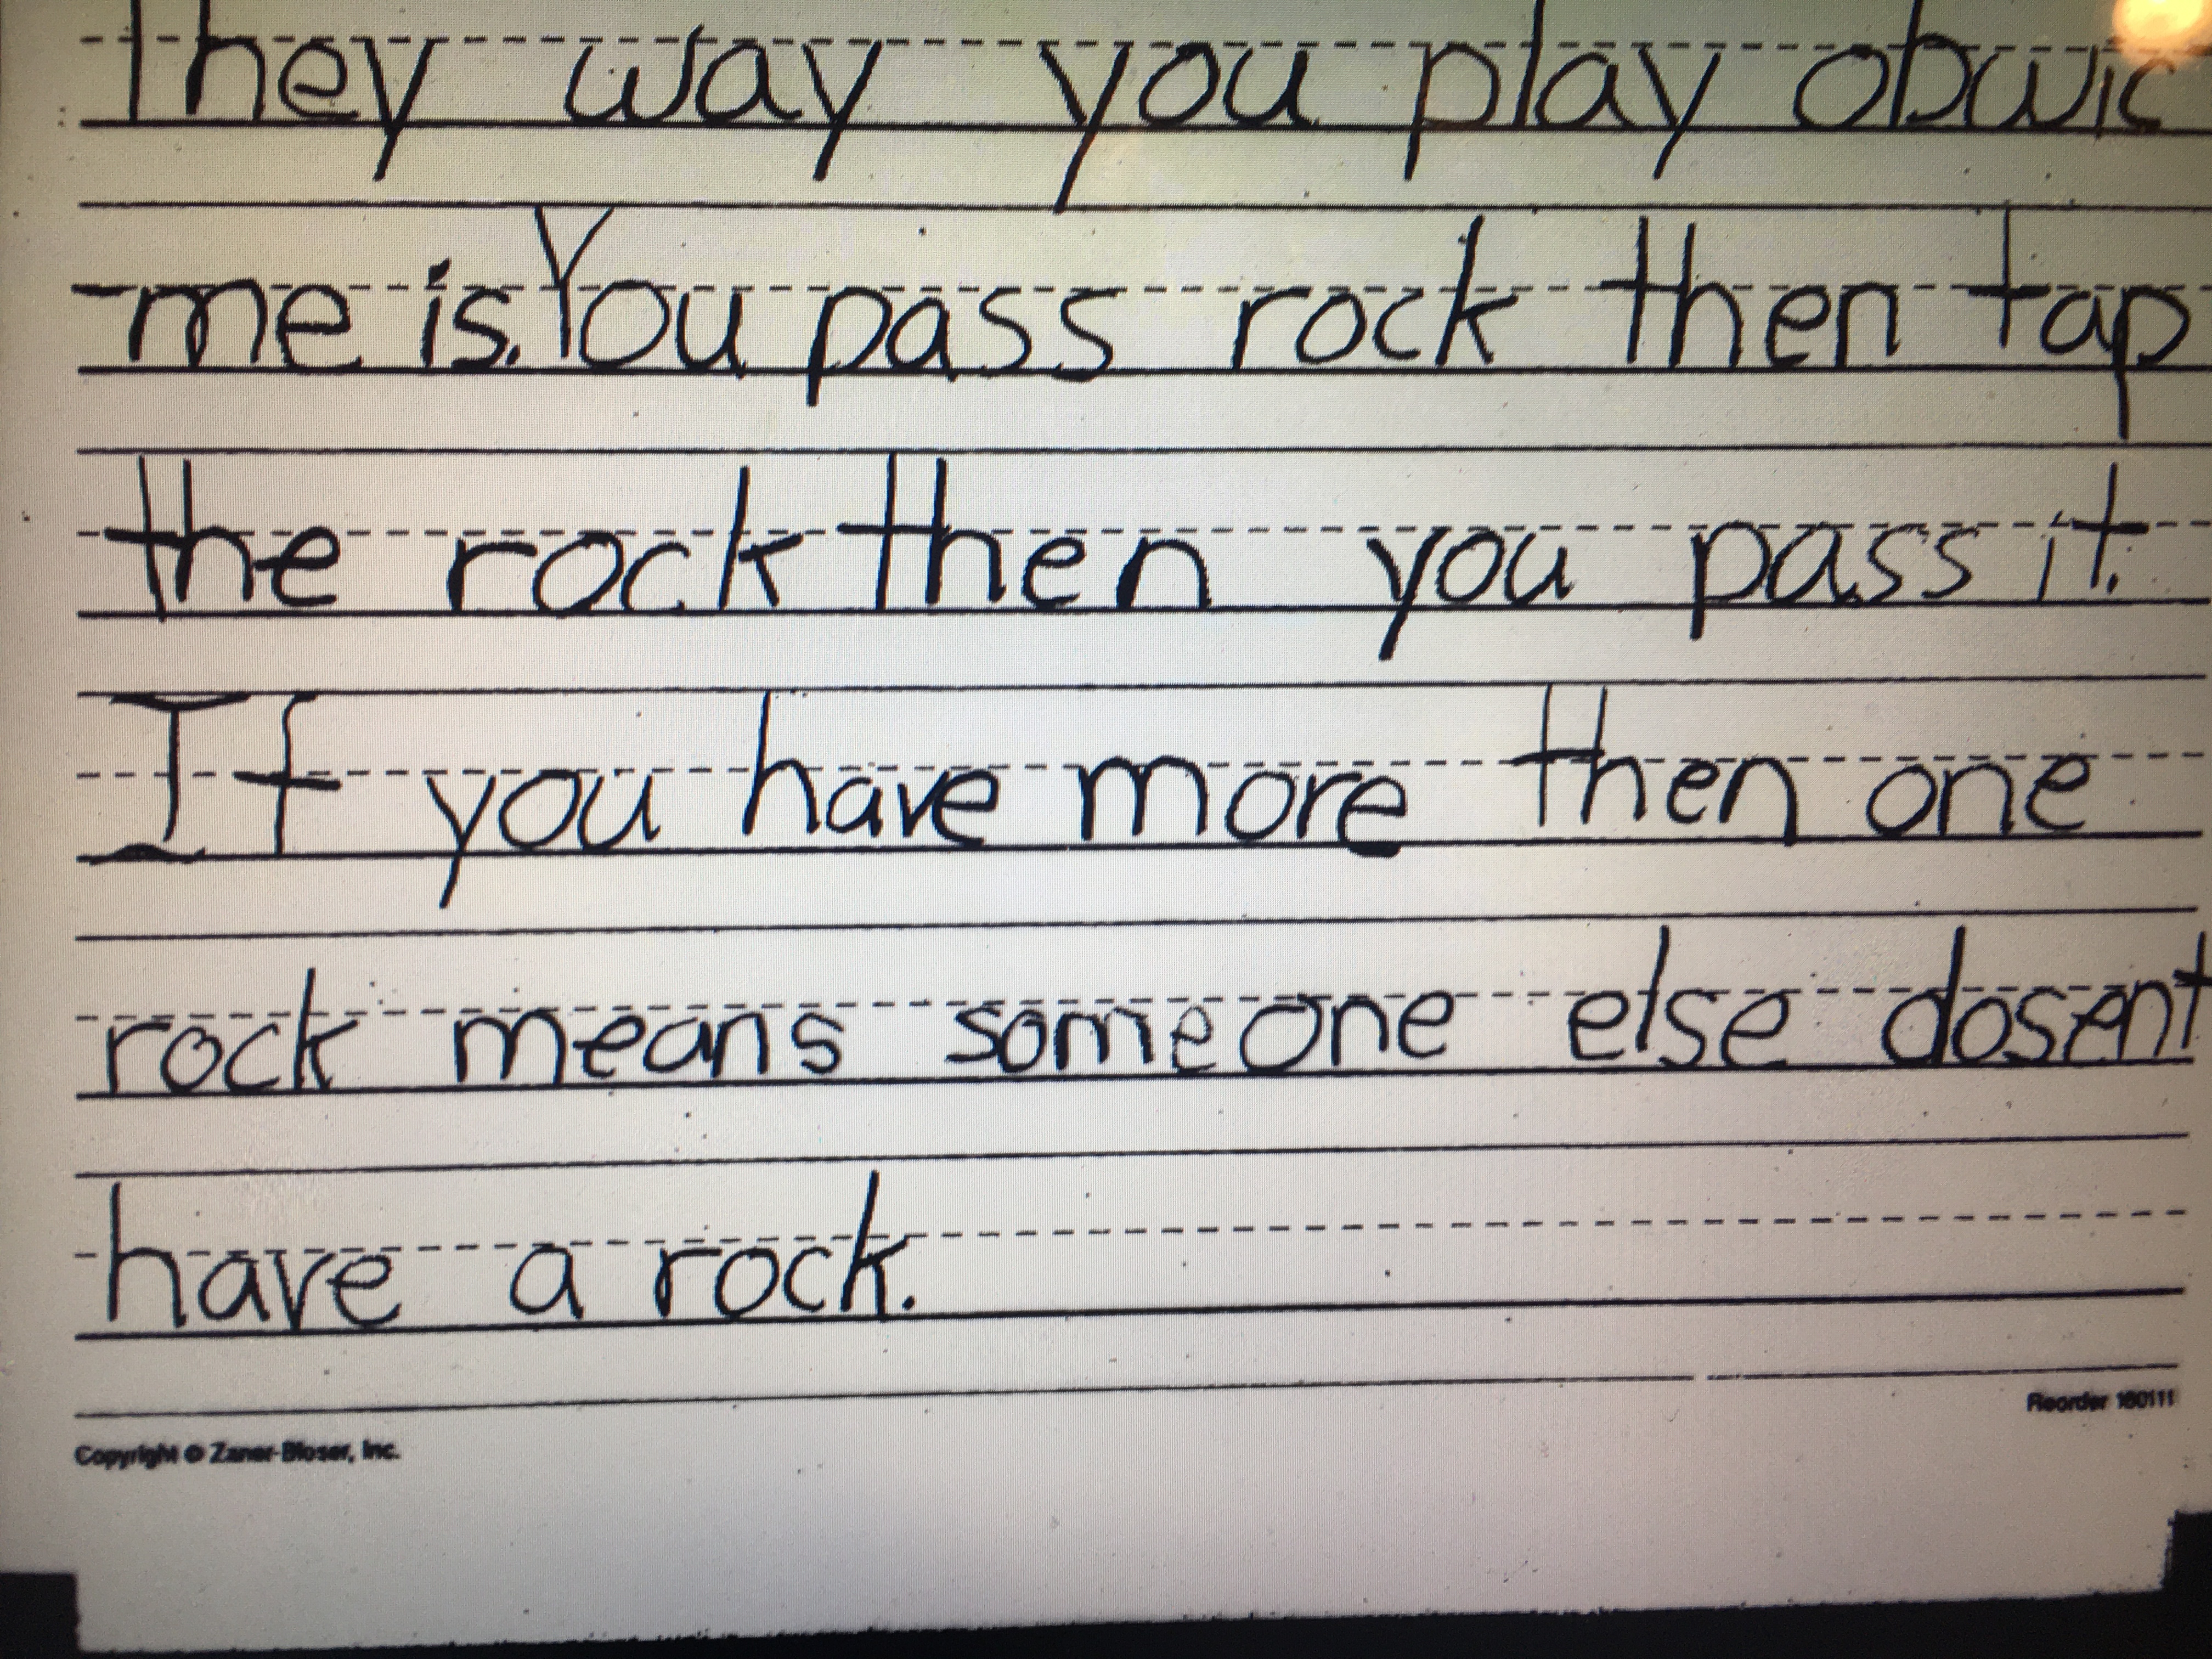 They way you play obwic
me is. You pass rock then tap
the rock then you pass it.
If you have more then one
rock means someone else dosent
have a rock.
Reorder 160111
Copyright © Zaner-Bloser, Inc.